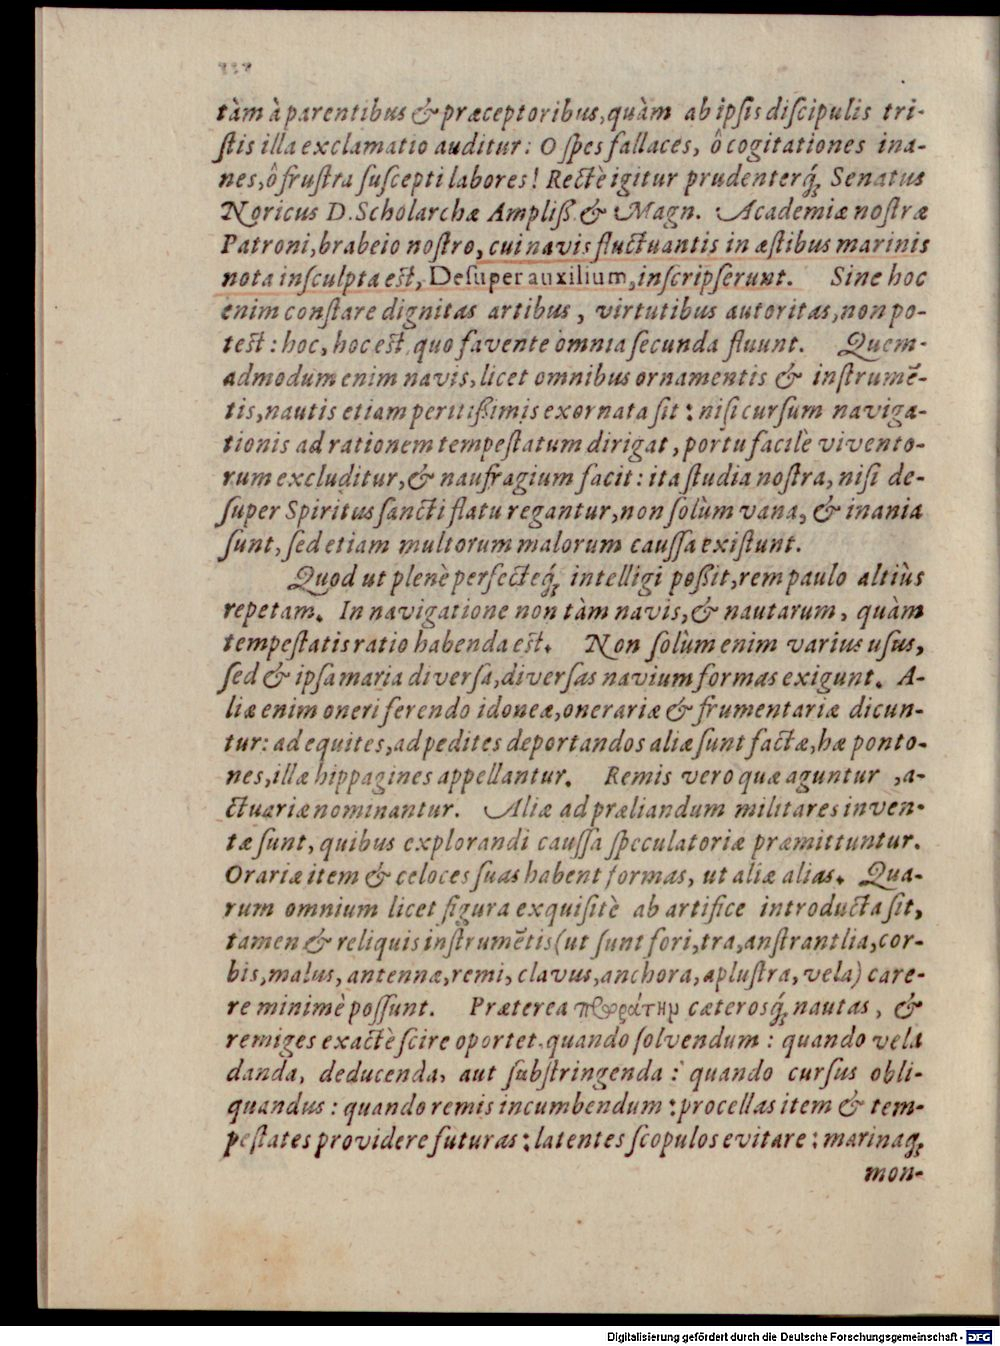 tàm à parentibus & præceptoribus, quàm ab ipsis discipulis tri-
stis illa exclamatio auditur: O spes fallaces, ô cogitationes ina-
nes, ô frustra suscepti labores! Rectè igitur prudenterq́; Senatus
Noricus D. Scholarchæ Ampliss. & Magn. Academiæ nostræ
Patroni, brabeio nostro, cui navis fluctuantis in æstibus marinis
nota insculpta est, Desuper auxilium, inscripserunt. Sine hoc
enim constare dignitas artibus, virtutibus autoritas, non po-
test: hoc, hoc est, quo favente omnia secunda fluunt. Quem-
admodum enim navis, licet omnibus ornamentis & instrumē-
tis, nautis etiam peritissimis exornata sit: nisi cursum naviga-
tionis ad rationem tempestatum dirigat, portu facilè vivento-
rum excluditur, & naufragium facit: ita studia nostra, nisi de-
super Spiritus sancti flatu regantur, non solùm vana, & inania
sunt, sed etiam multorum malorum caussa existunt.
Quod ut plenè perfecteq́; intelligi possit, rem paulo altiùs
repetam. In navigatione non tàm navis, & nautarum, quàm
tempestatis ratio habenda est. Non solùm enim varius usus,
sed & ipsa maria diversa, diversas navium formas exigunt. A-
liæ enim oneri ferendo idoneæ, onerariæ & frumentariæ dicun-
tur: ad equites, ad pedites deportandos aliæ sunt factæ, hæ ponto-
nes, illæ hippagines appellantur. Remis vero quæ aguntur, a-
ctuariæ nominantur. Aliæ ad præliandum militares inven-
tæ sunt, quibus explorandi caussa speculatoriæ præmittuntur.
Orariæ item & celoces suas habent formas, ut aliæ alias. Qua-
rum omnium licet figura exquisitè ab artifice introducta sit,
tamen & reliquis instrumētis (ut sunt fori, tra, anstrantlia, cor-
bis, malus, antennæ, remi, clavus, anchora, aplustra, vela) care-
re minimè possunt. Præterea cæterosq́; nautas, &
remiges exactè scire oportet, quando solvendum: quando vela
danda, deducenda, aut substringenda: quando cursus obli-
quandus: quando remis incumbendum: procellas item & tem-
pestates providere futuras: latentes scopulos evitare: marinaq́;
mon-
Digitalisierung gefördert durch die Deutsche Forschungsgemeinschaft - DFG